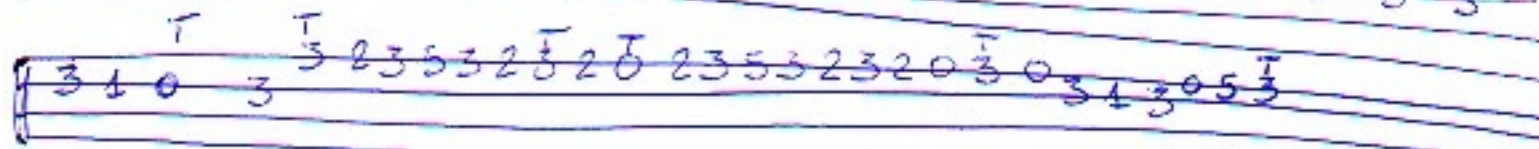 T T T T T T
3 1 0 3 3 2 3 5 3 2 3 2 0 2 3 5 3 2 3 2 0 3 0 3 1 3 0 5 3